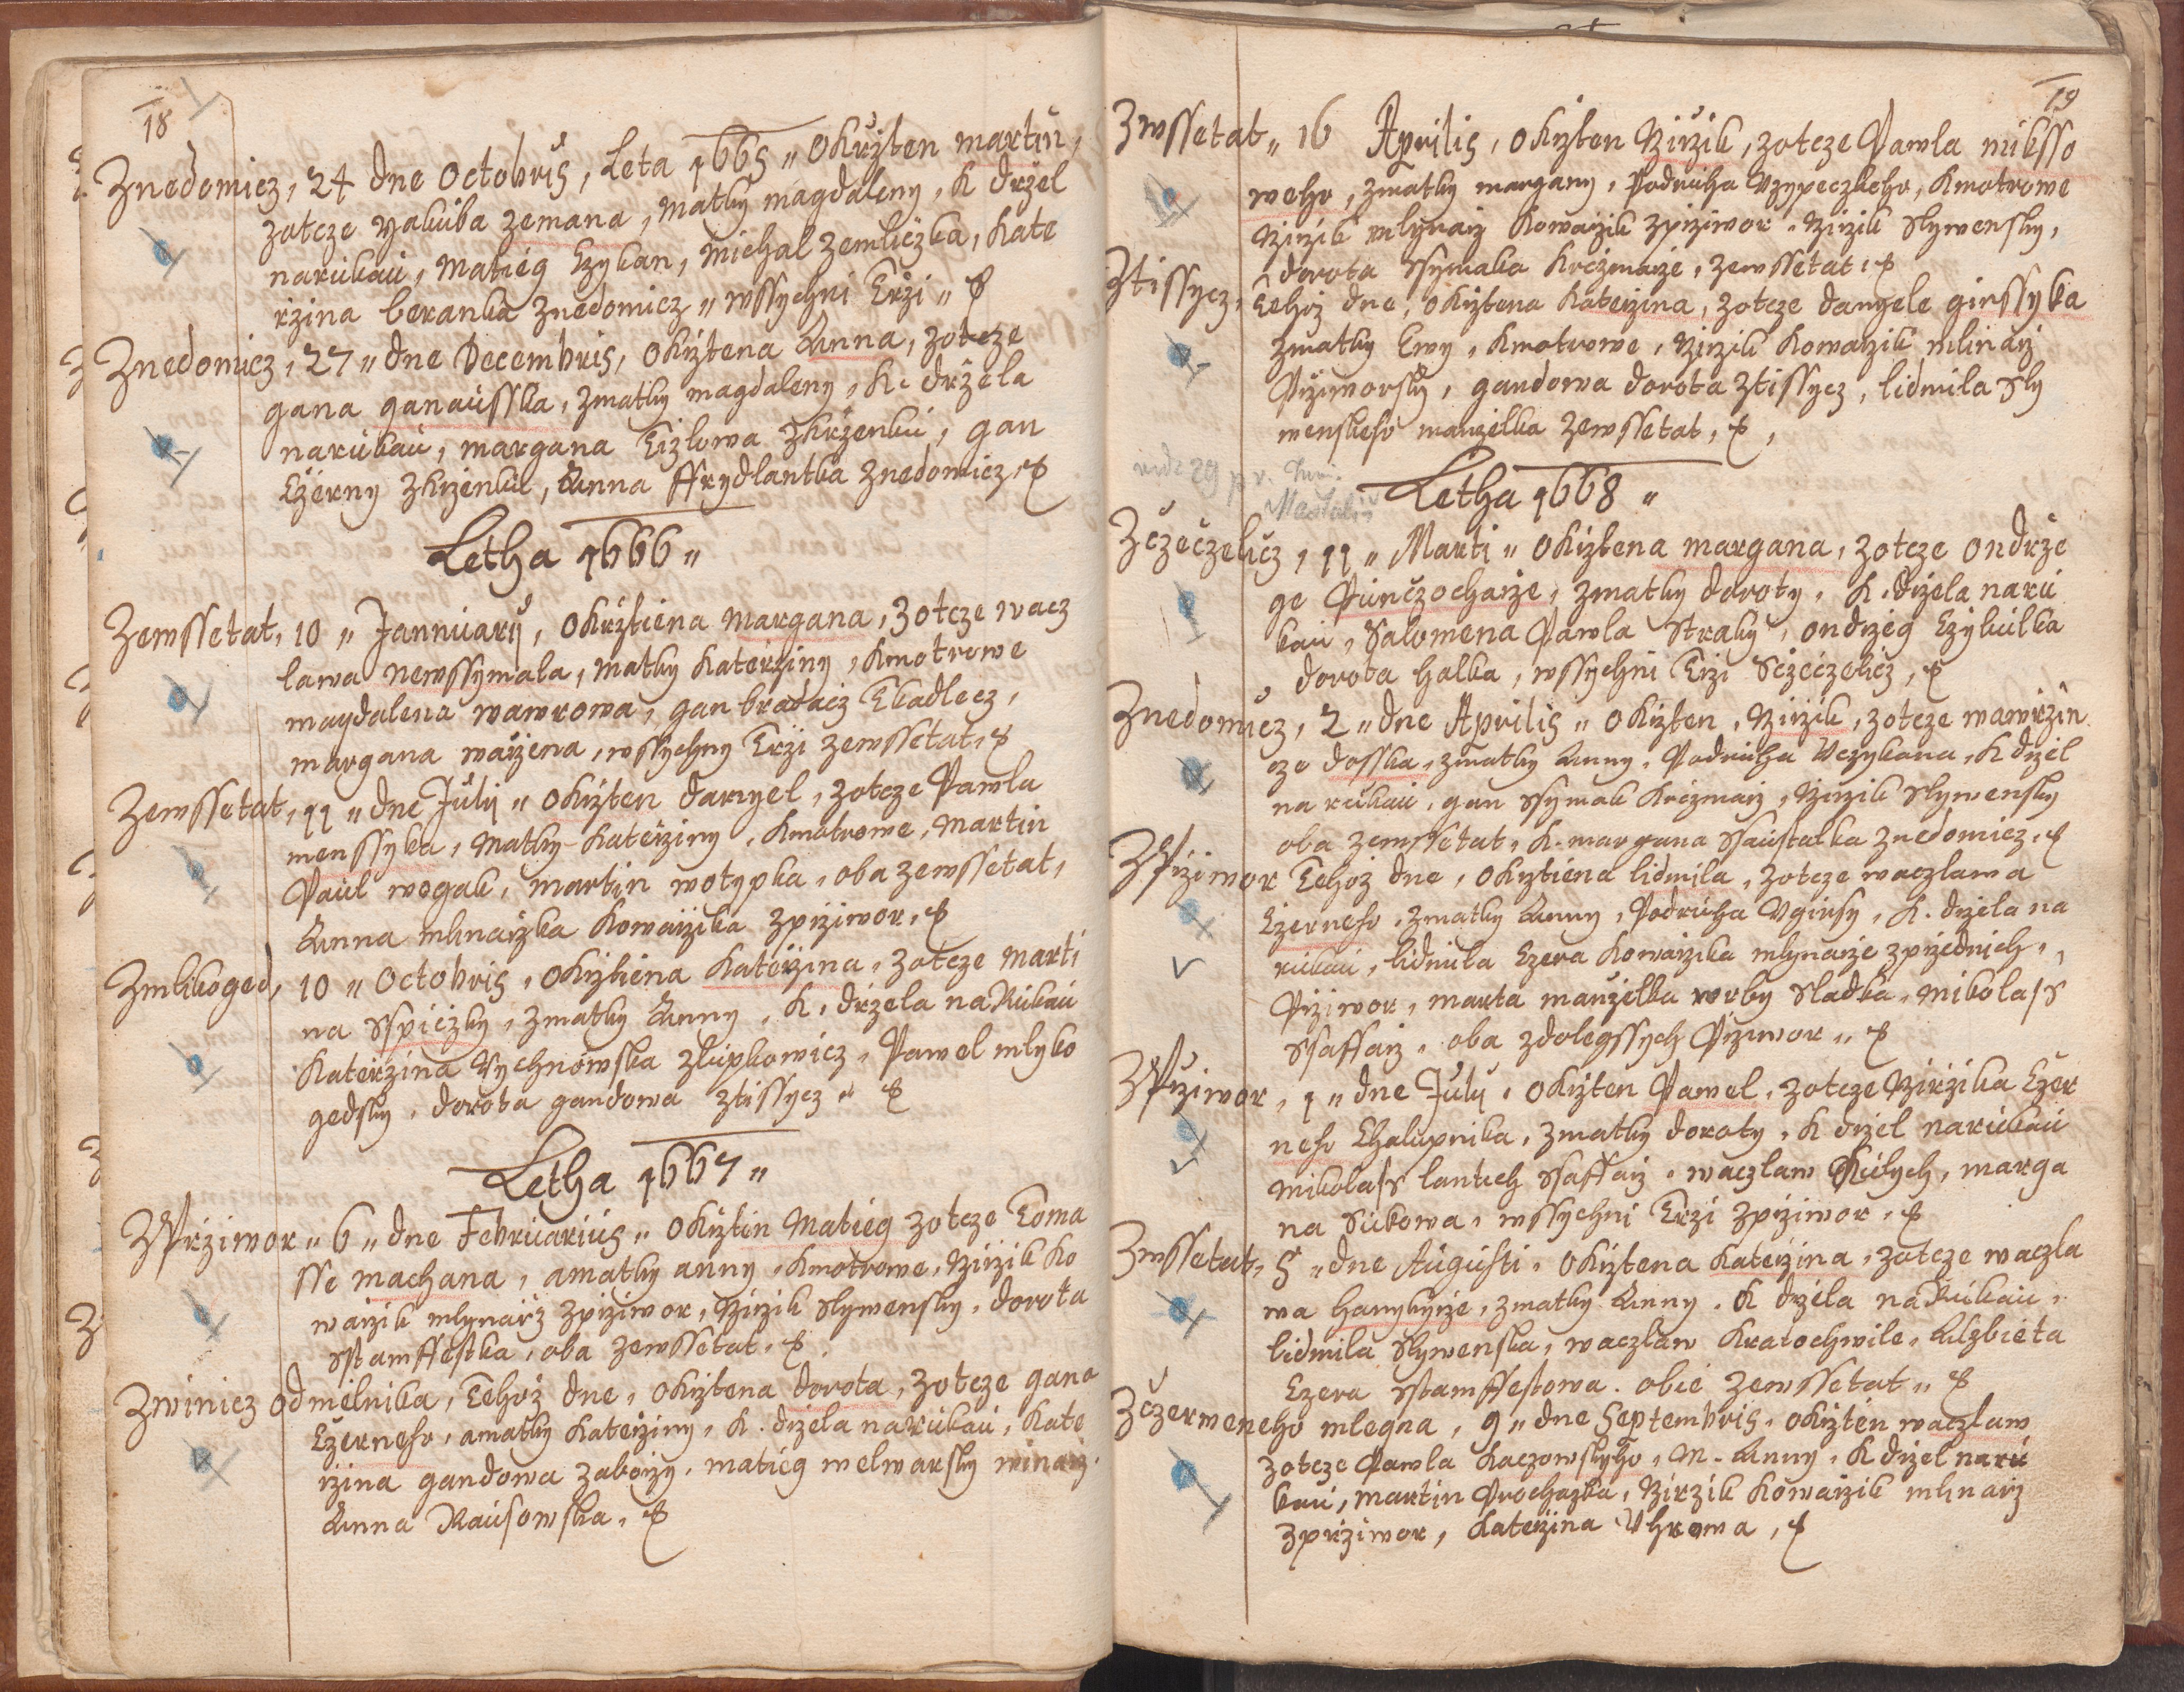 18
Znedomicz, 24 dne Octobris, Leta 1665 „ Okržten martin,
zotcze yakuba zemana, matky magdaleny, K držel
narukau, Matieg Czykan, Michal zemliczka, Kate
ržina beranka znedomicz „ wssychni Trži „
Znedomicz, 27 „ dne Decembris, Okržtena Anna, zotcze
gana ganausska, zmatky magdaleny, K. držela
narukau, margana Tizlowa zkrženku, gan
Czerny zkrženku, Anna ffrydlantka znedomicz,
Letha 1666 „
Zewssetat, 10 „ Jannuarij, Okržtiena Margana, zotcze wacz
lawa newssymala, matky Kateržiny, Kmotrowe
magdalena wawrowa, gan bradacz Tkadlecz,
margana waržena, wssychny Trži zewssetat,
Zewssetat, 11 „ dne Julij „ Okržten danyel, zotcze Pawla
menssyka, Matky Kateržiny, Kmotrowe, Martin
Paul wogak, martin wotypka, oba zewssetat,
Anna mlinaržka Kowaržika zpržiwor,
Zmlikoged, 10 „ Octobris, Okržtiena Kateržina, zotcze Marti
na Sspiczky, zmatky Anny, K, držela na Rukau
Kateržina Vychnowska zlupkowicz, Pawel mlyko
gedsky, dorota gandowa ztissycz „
Letha 1667 „
ZPržiwor „ 6 „ dne Februarius „ Okržtin Matieg zotcze Toma
sse machana, amatky anny, Kmotrowe, Yiržik Ko
waržik mlynarž zpržiwor, Yiržik Slywensky, dorota
Sstamffestka, oba zewssetat,
Zwinicz od mielnika, Tehož dne, Okržtena dorota, zotcze gana
Czerneho, amatky Kateržiny, K. držela narukau, Kate
ržina gandowa zaborzy, matieg welwarsky winarž,
Anna Rausowska,
19
Zwssetat „ 16 Aprilis, Okržten Yiržik, zotcze Pawla miksso
weho, zmatky margany, Podruha Vzypeczkeho, Kmotrowe
Yiržik mlynarž Kowaržik zpržiwor, Yiržik Slywensky,
dorota Ssymaka Krczmarže, zewssetat,
Ztissycz, Tehož dne, Okržtena Kateržina, zotcze danyele ginssyka
zmatky Ewy, Kmotrowe, Yiržik Kowaržik mlinarž
Pržiworsky, gandowa dorota ztissycz, lidmila Sly
wenskeho manželka zewssetat,
Letha 1668 „
Zčzečzelicz, 11 „ Marti „ Okržtena margana, zotcze Ondrže
ge Punczocharže, zmatky doroty, K. držela naru
kau, Salomena Pawla Straky, ondržeg Czykulka
dorota halka, wssychni Trži Sčzečzelicz,
Znedomicz, 2 „ dne Aprilis „ Okržten, Yiržik, zotcze wawržin
cze dosska, zmatky Anny, Podruha Vczykana, K držel
na rukau, gan Ssymak Krczmarž, Yiržik Slywensky
oba zewssetat, K. margana Ssaustalka znedomicz,
ZPržiwor Tehož dne, Okržtiena lidmila, zotcze waczlawa
Czerneho, zmatky Anny, Podruha Vgirky, K. držela na
rukau, lidmila Czera Kowaržika mlynarže zprzednich
Pržiwor, marta manželka wrby Sladka, Mikolass
Ssaffarž, oba zdolegssych Pržiwor „
ZPržiwor, 1 „ dne Julij, Okržten Pawel, zotcze Yiržika Czer
neho Chalupnika, zmatky doroty, K držel narukau
Mikolass lantich Ssaffarž, waczlaw Kulych, marga
na Sukowa, wssychni Trži zpržiwor,
Zwssetat, 5 „ dne Augusti, Okržtena Kateržina, zotcze waczla
wa hanykyrže, zmatky Anny, K držela na Rukau,
lidmila Slywenska, waczlaw Kratochwile, Alzbieta
Czera Sstamffestowa. obie zewssetat „
Zčzerweneho mlegna, 9 „ dne Septembris, Okržten waczlaw
zotcze Pawla Kaczowskyho, M. Anny, K držel naru
kau, martin Prochazka, Yirzik Kowaržik mlinarž
zpržiwor, Kateržina Vhrowa,